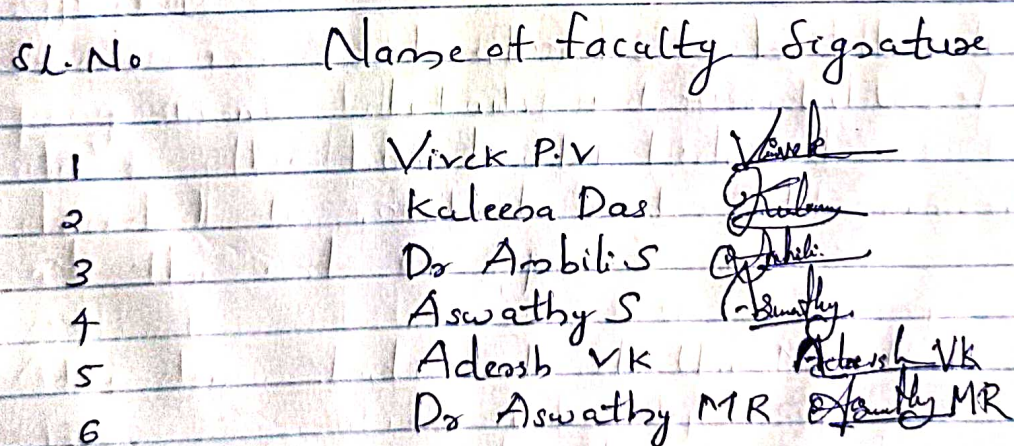 SL. No Name of faculty Signature
1 Vivek P.V Vivek
2 Kaleena Das
3 Dr Ambili S Ambili
4 Aswathy S Aswathy
5 Adersh VK Adersh VK
6 Dr Aswathy MR Aswathy MR